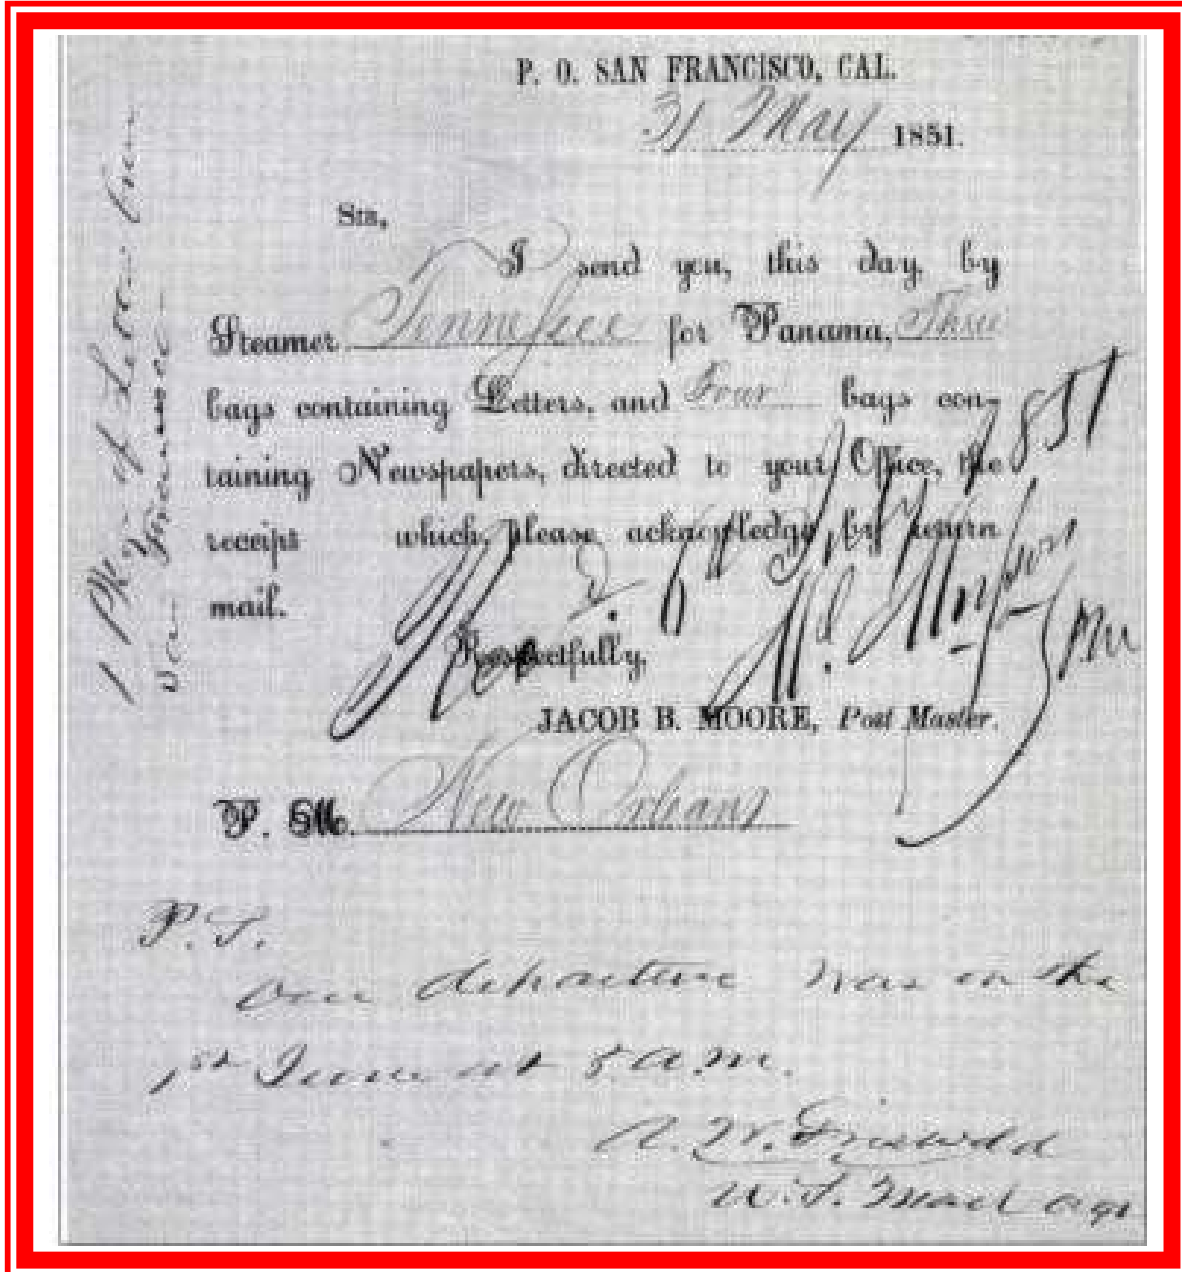 P. O. SAN FRANCISCO, CAL.
31 May 1851.
Sir,
I send you, this day, by
Steamer Tennessee for Panama, Three
bags containing Letters, and Four bags con-
taining Newspapers, directed to your Office, the
receipt which, please acknowledge by return
mail.
Respectfully,
JACOB B. MOORE, Post Master.
P. M. New Orleans
P.S.
Our departure was on the
1st June at 8 a.m.
A. W.
U.S. Mail Agt
1 Pkg of
San Francisco
1851